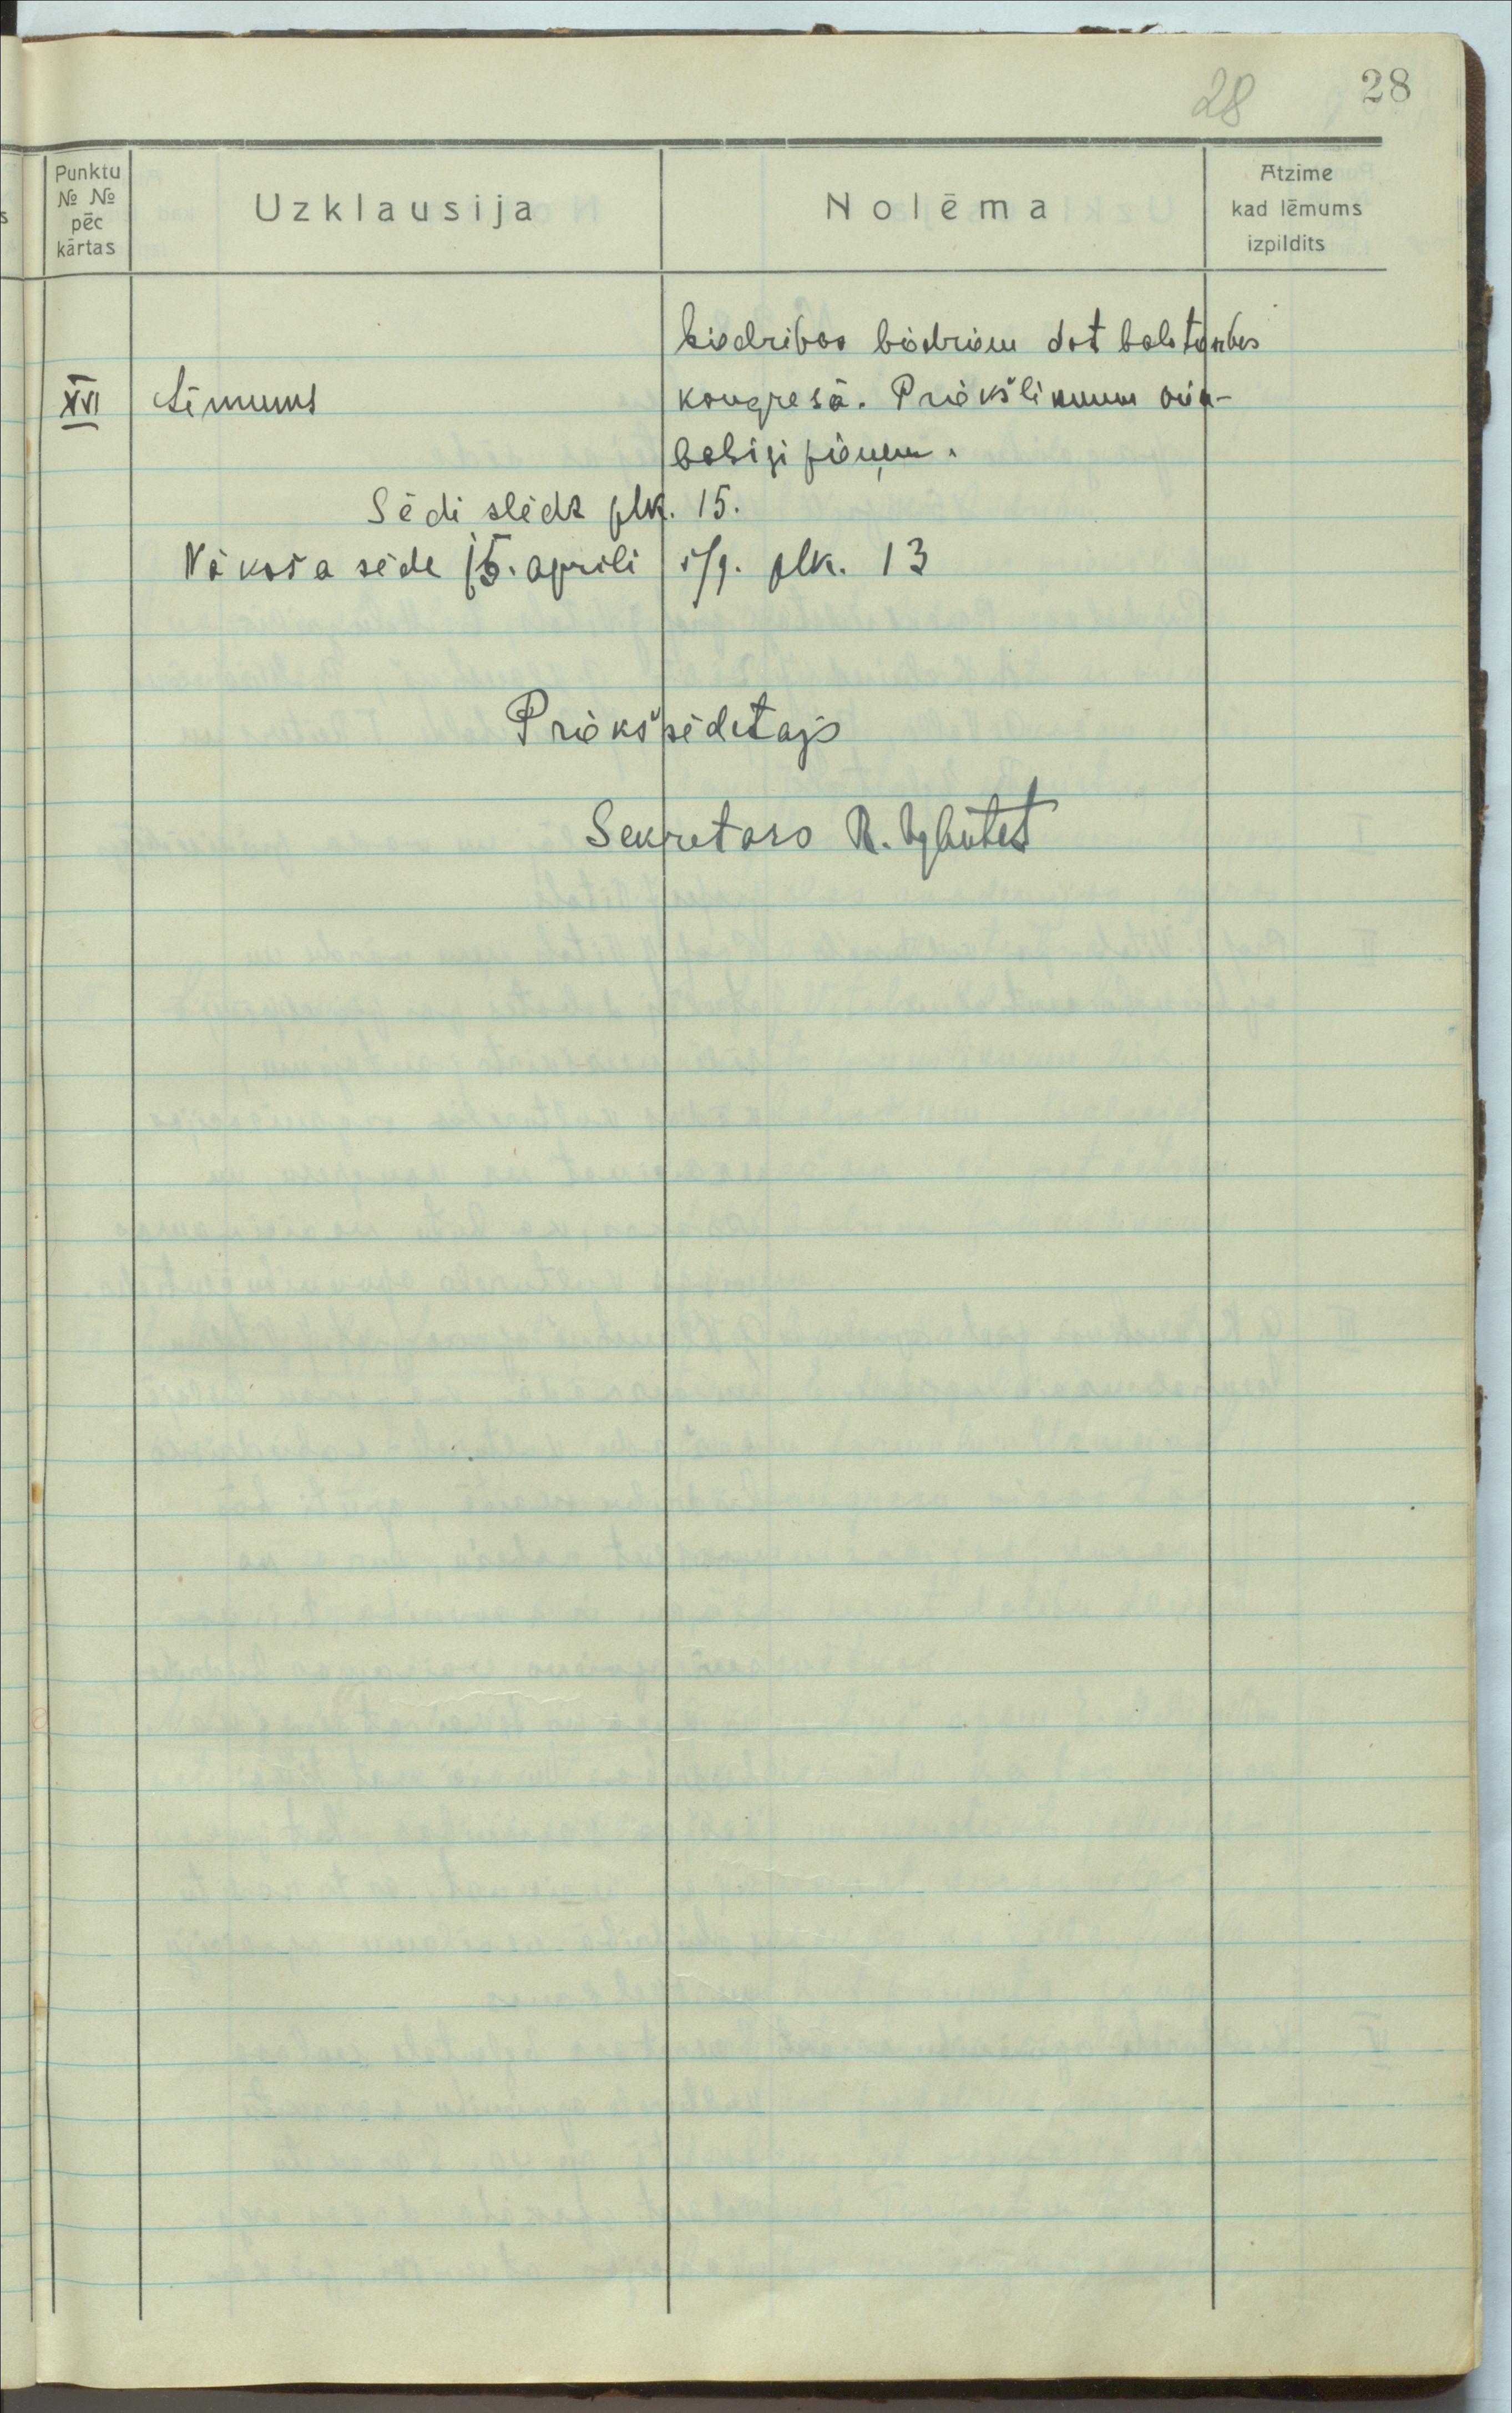 28 28
Punktu № № pēc kārtas
Uzklausija
Nolēma
Atzime kad lēmums izpildits
biedribas biedriem dot balstiesibas
XVI Lēmums kongresā. Priekšlikumu vien-
balsigi pieņem.
Sēdi slēdz plk. 15.
Nākoša sēde 15. aprili š/g. plk. 13
Priekšsēdetajs
Sekretars R.